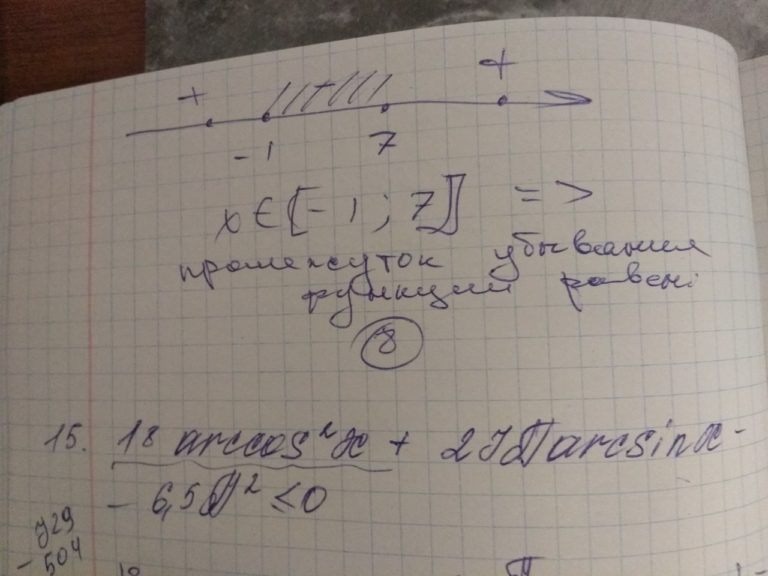 + +
-1 7
x ∈ [-1; 7] =>
промежуток убывания
функции равен:
8
15. 18 arccos²x + 27π arcsin x -
- 6,5π² ≤ 0
729
- 504